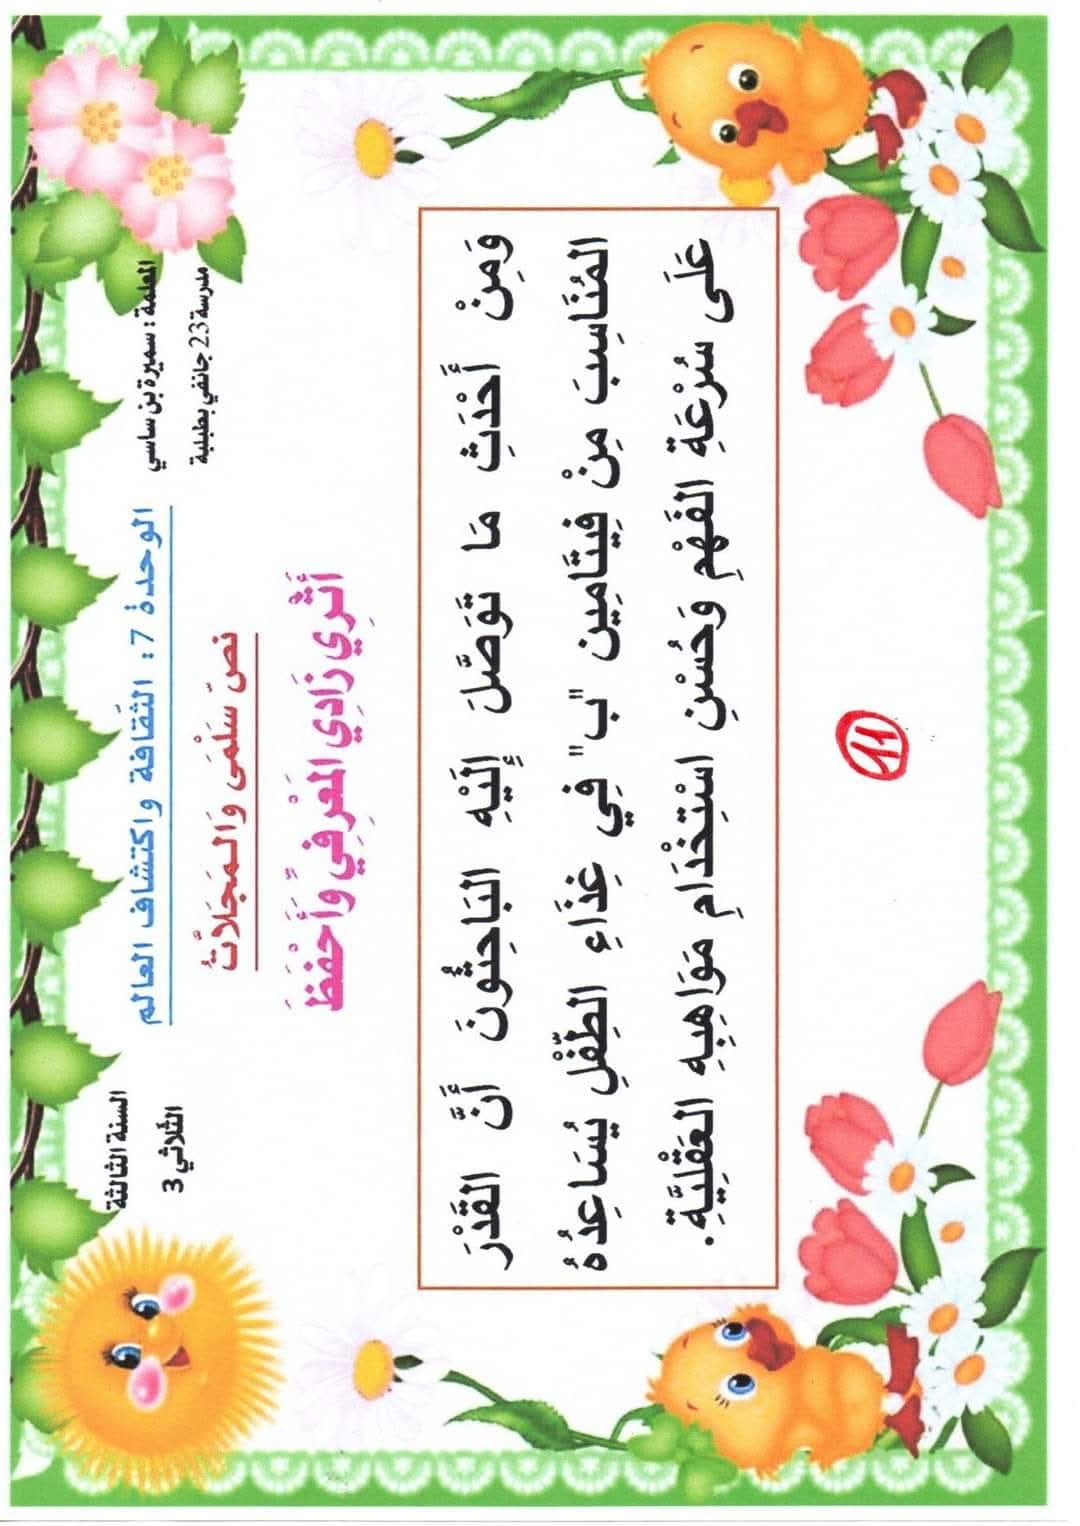 المعلمة : سميرة بن ساسي
مدرسة 23 جانفي بطبلبة
السنة الثالثة
الثلاثي 3
الوحدة 7: الثقافة واكتشاف العالم
نصّ سَلْمَى وَالـمَجَلاَّتُ
أُثْرِي زَادِي المَعْرِفِيَّ وَأَحْفَظُ
وَمِنْ أَحْدَثِ مَا تَوَصَّلَ إِلَيْهِ البَاحِثُونَ أَنَّ القَدْرَ
المُنَاسِبَ مِنْ فِيتَامِين "ب" فِي غِذَاءِ الطِّفْلِ يُسَاعِدُهُ
عَلَى سُرْعَةِ الفَهْمِ وَحُسْنِ اسْتِخْدَامِ مَوَاهِبِهِ العَقْلِيَّةِ.
11